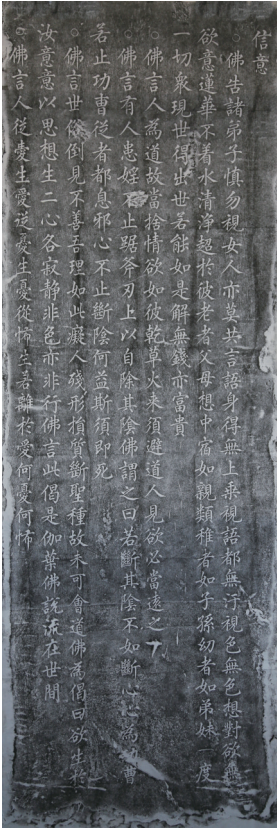 信意
○佛告諸弟子慎勿視女人亦莫共言語身得無上乘視語都無汙視色無色想對欲無
欲意蓮華不着水清淨超於彼老者父母想中宿如親類稚者如子孫幼者如弟妹一度
一切衆現世得出世若能如是解無錢亦富貴
○佛言人為道故當捨情欲如彼乾草火來須避道人見欲必當遠之
○佛言有人患婬不止踞斧刃上以自除其陰佛謂之曰若斷其陰不如斷心心為功曹
若止功曹從者都息邪心不止斷陰何益斯須即死
○佛言世俗倒見不善吾理如此癡人殘形損質斷聖種故未可會道佛為偈曰欲生於
汝意意以思想生二心各寂静非色亦非行佛言此偈是伽葉佛說流在世間
○佛言人從愛生憂從憂生怖離於愛何憂何怖